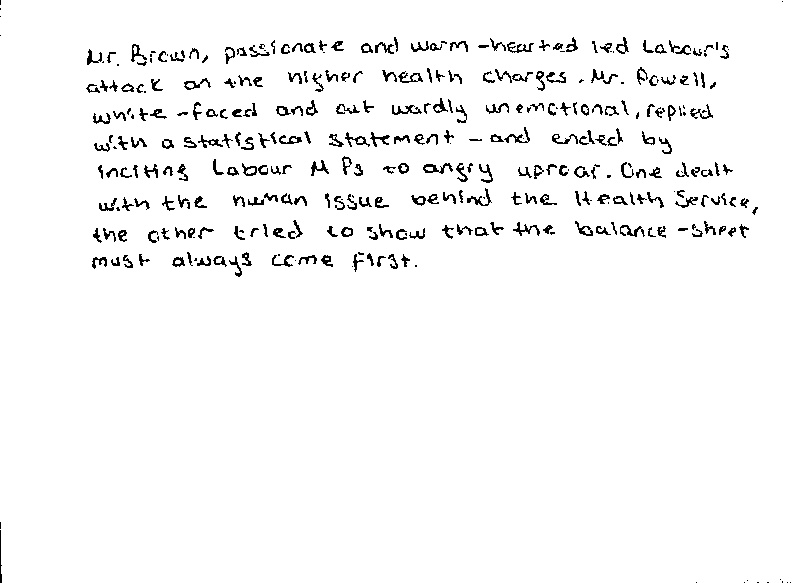 Mr. Brown, passionate and warm-hearted led Labour's
attack on the higher health charges. Mr. Powell,
white-faced and outwardly unemotional, replied
with a statistical statement - and ended by
inciting Labour MPs to angry uproar. One dealt
with the human issue behind the Health Service,
the other tried to show that the balance-sheet
must always come first.